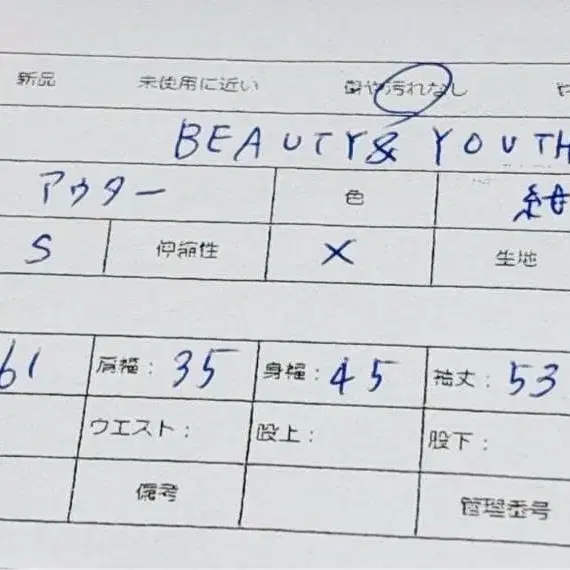 新品 未使用に近い 傷や汚れなし
BEAUTY& YOUTH
アウター 色 紺
S 伸縮性 × 生地
61 肩幅: 35 身幅: 45 袖丈: 53
ウエスト: 股上: 股下:
備考 管理番号